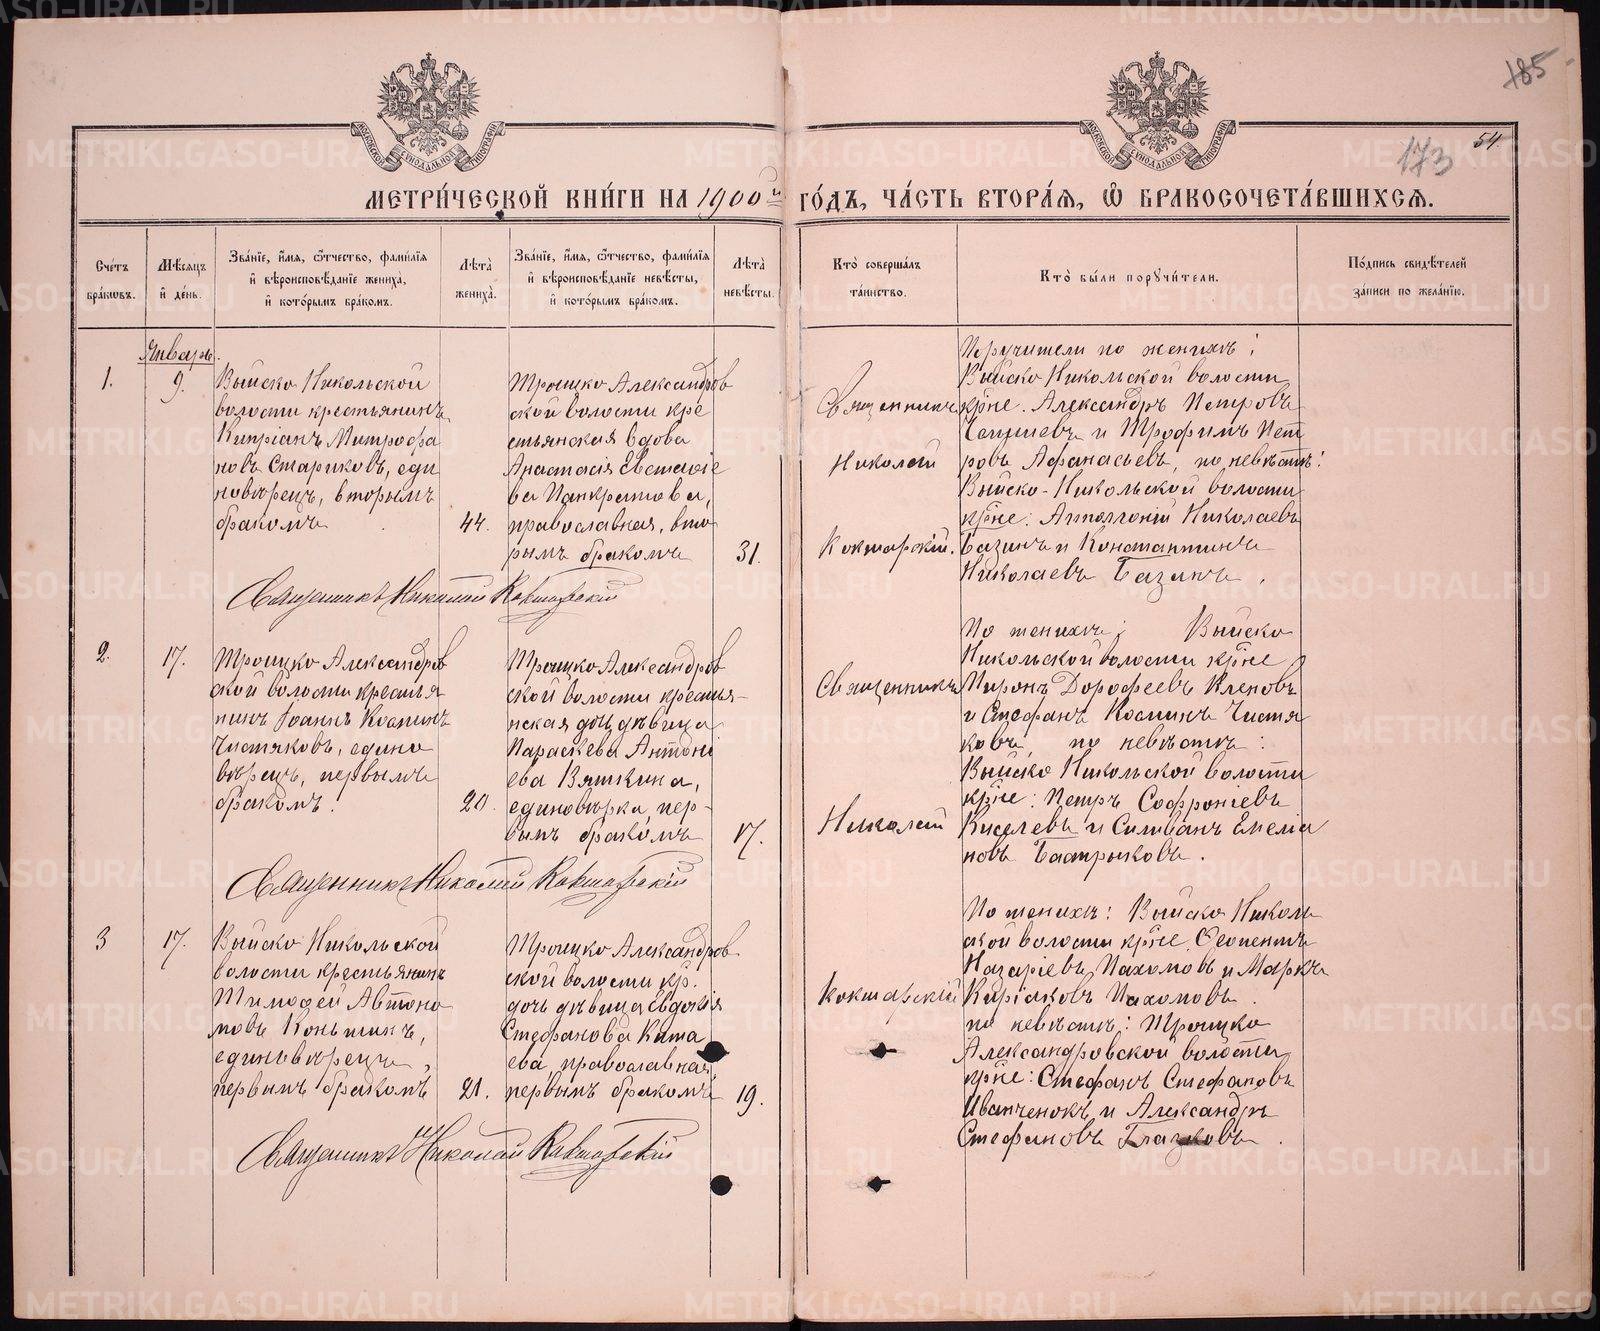 185
173
54
МОСКОВСКОЙ СУНОДАЛЬНОЙ ТИПОГРАФІИ
МОСКОВСКОЙ СУНОДАЛЬНОЙ ТИПОГРАФІИ
МЕТРИ́ЧЕСКОЙ КНИ́ГИ НА 1900й ГО́ДЪ, ЧА́СТЬ ВТОРА́Я, Ѡ БРАКОСОЧЕТА́ВШИХСЯ.
Сче́тъ бра́ковъ.
Мѣ́сяцъ и҆ де́нь.
Зва́нїе, и҆́мя, ѻ҆́тчество, фами́лїя и҆ вѣроисповѣ́данїе жениха̀, и҆ кото́рымъ бра́комъ.
Лѣ́та жениха̀.
Зва́нїе, и҆́мя, ѻ҆́тчество, фами́лїя и҆ вѣроисповѣ́данїе невѣ́сты, и҆ кото́рымъ бра́комъ.
Лѣ́та невѣ́сты.
Кто̀ соверша́лъ та́инство.
Кто̀ бы́ли поручи́тели.
По́дпись свидѣ́телей за́писи по жела́нїю.
Январь.
1.
9.
Выйско Никольской
волости крестьянинъ
Кипріанъ Митрофа
новъ Стариковъ, еди
новѣрецъ, вторымъ
бракомъ
44.
Троицко Александров
ской волости кре
стьянская вдова
Анастасія Евстафіе
ва Панкратова,
православная, вто
рымъ бракомъ
31.
Священникъ
Николай
Кокшарскій.
Поручители по женихѣ:
Выйско Никольской волости
кр̃не. Александръ Петровъ
и Трофимъ Пет
ровъ Афанасьевъ, по невѣстѣ:
Выйско-Никольской волости
кр̃не: Апполоній Николаевъ
Базинъ и Константинъ
Николаевъ Базинъ.
Священникъ Николай Кокшарскій
2.
17.
Троицко Александров
ской волости крестья
нинъ Іоаннъ Косминъ
Чистяковъ, едино
вѣрецъ, первымъ
бракомъ.
20.
Троицко Александров
ской волости крестья-
нская дочь дѣвица
Параскева Антоні
ева Вяткина,
единовѣрка, пер-
вымъ бракомъ
17.
Священникъ
Николай
Кокшарскій
По женихѣ: Выйско
Никольской волости кр̃не
Миронъ Дорофеевъ Клеповъ
и Стефанъ Косминъ Чистя
ковъ, по невѣстѣ:
Выйско Никольской волости
кр̃не: Петръ Софроніевъ
Киселевъ и Силванъ Емелиа
новъ Бастрыковъ.
Священникъ Николай Кокшарскій
3
17.
Выйско Никольской
волости крестьянинъ
Тимофей Автоно
мовъ Коньшинъ,
единовѣрецъ,
первымъ бракомъ
21.
Троицко Александров
ской волости кр.
дочь дѣвица Евдокія
Стефанова Кита
ева, православная,
первымъ бракомъ
19.
По женихѣ: Выйско Николь
ской волости кр̃не
Назаріевъ Пахомовъ и Маркъ
Киріаковъ Пахомовъ.
по невѣстѣ: Троицко
Александровской волости
кр̃не: Стефанъ Стефановъ
Иванченокъ и Александръ
Стефановъ Глазковъ.
Священникъ Николай Кокшарскій
METRIKI.GASO-URAL.RU